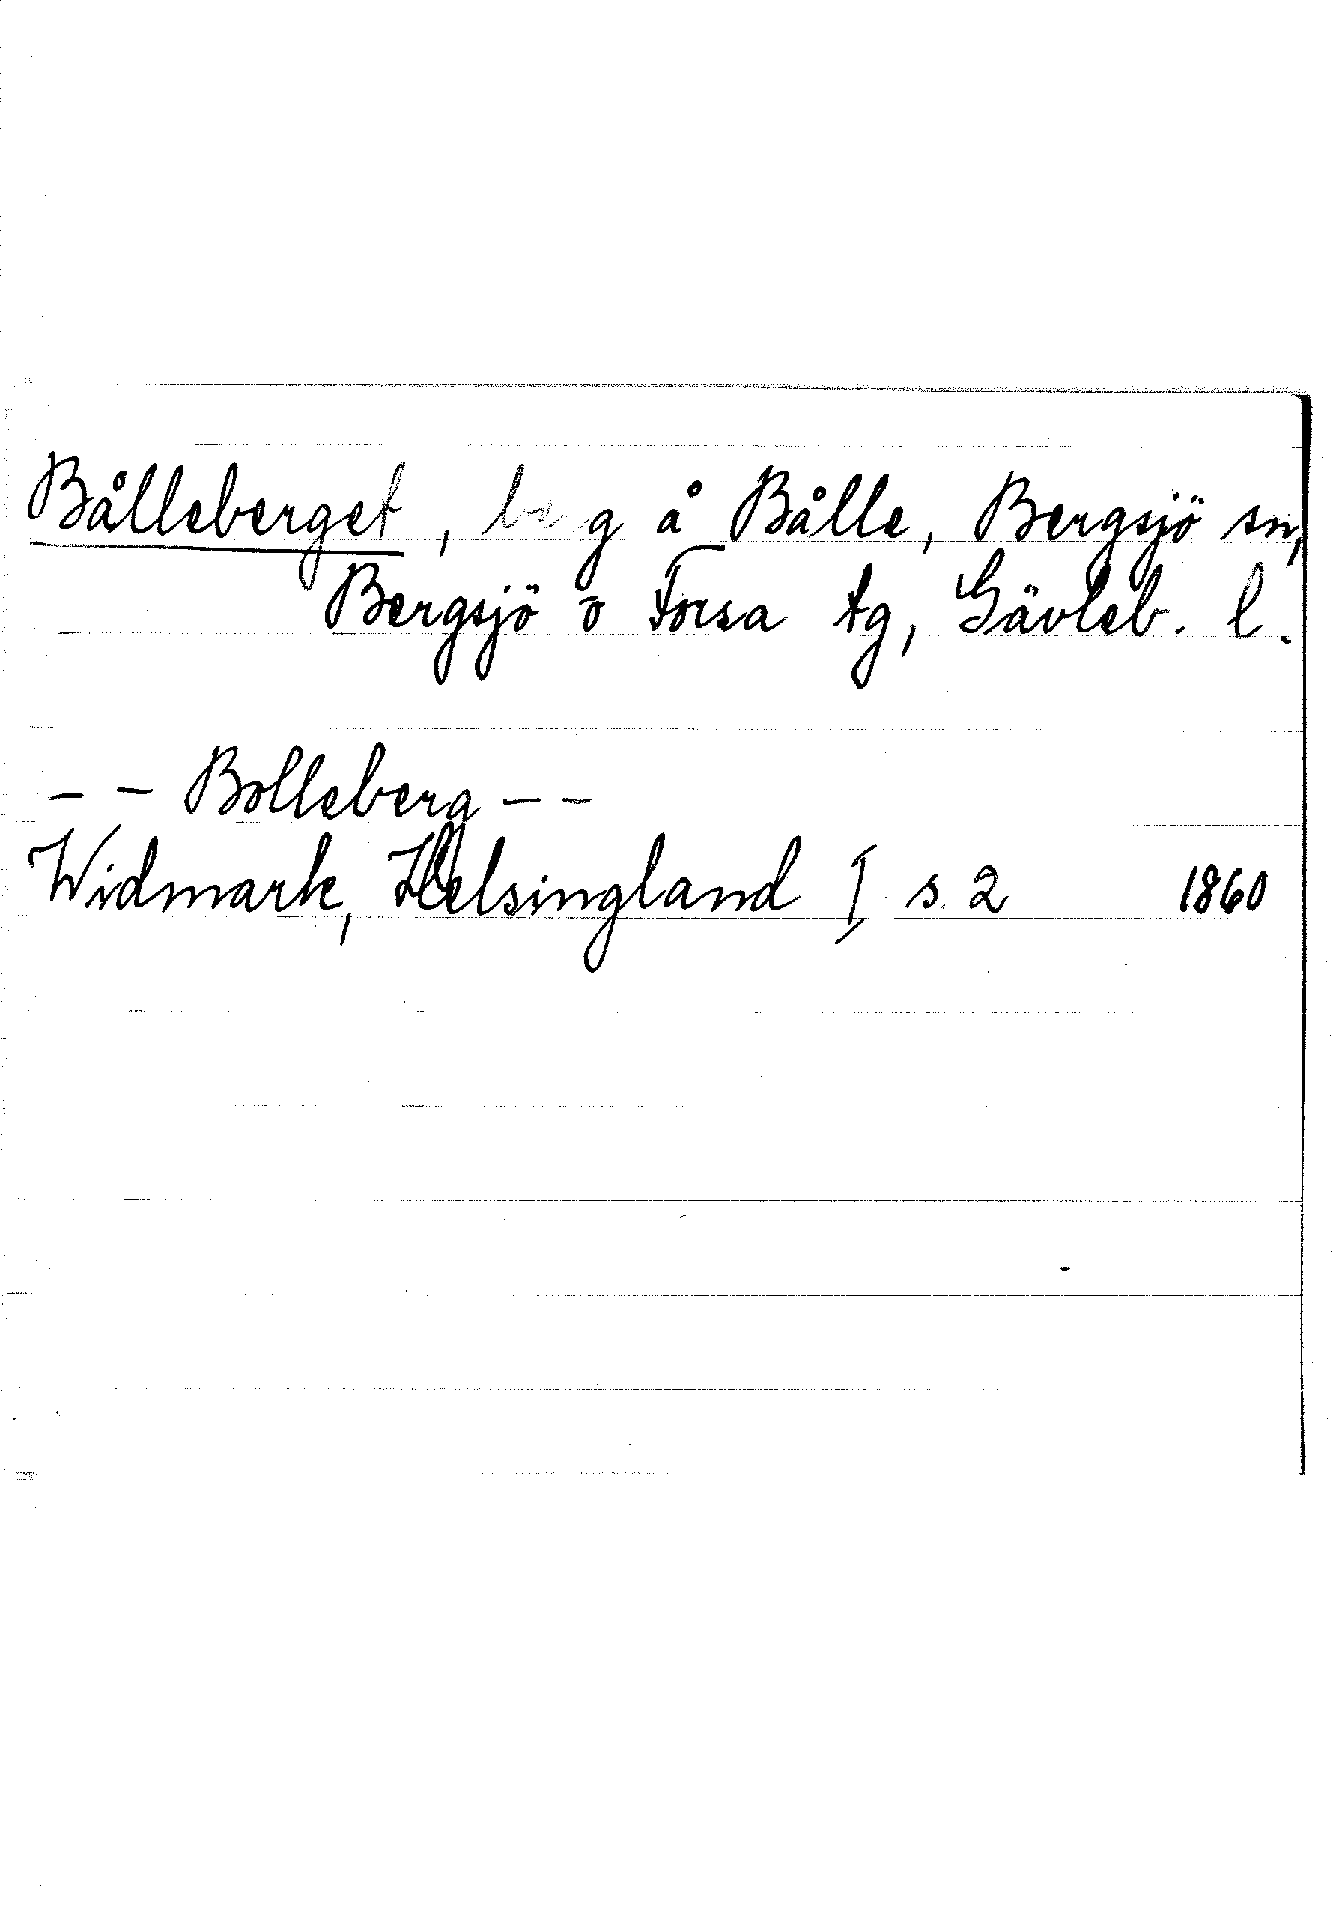 Bålleberget, berg å Bålle, Bergsjö sn,
Bergsjö o Forsa tg, Gävleb. l.
-- Bolleberg --
Widmark, Helsingland I s. 2 1860